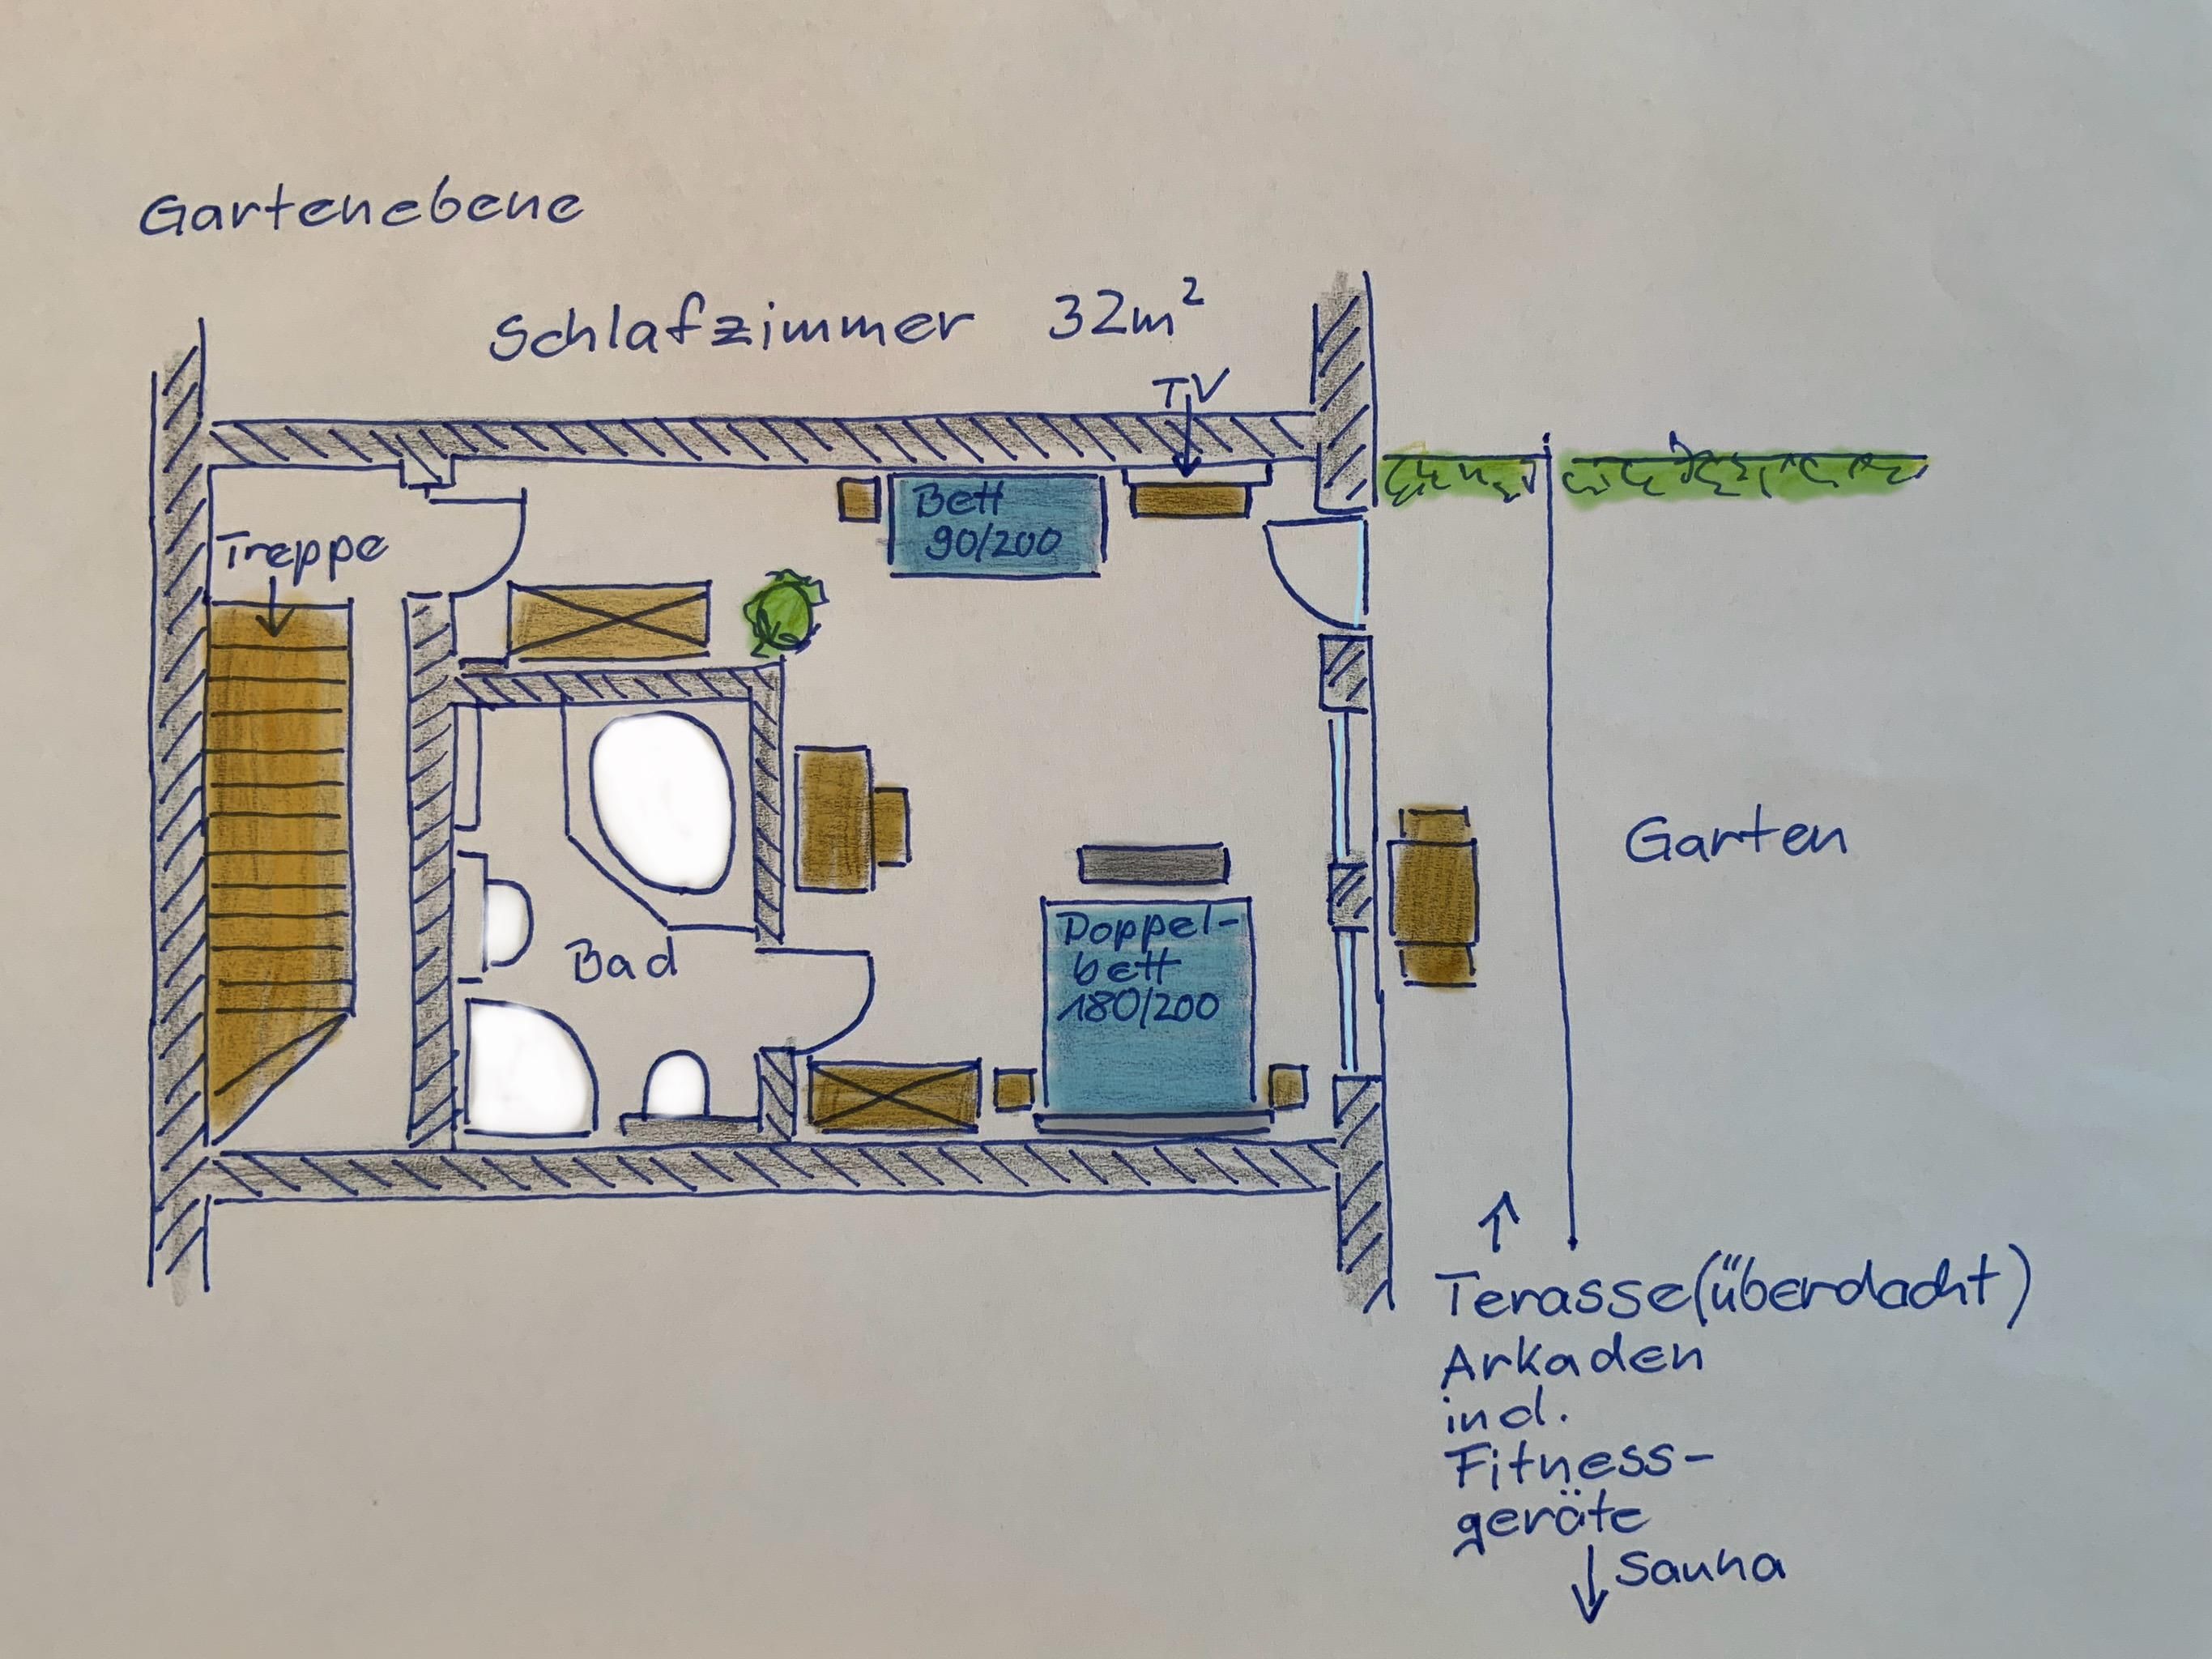 Gartenebene
Schlafzimmer 32m²
TV
Bett
90/200
Treppe
Garten
Doppel-
bett
180/200
Bad
Terasse(überdacht)
Arkaden
incl.
Fitness-
geräte
Sauna